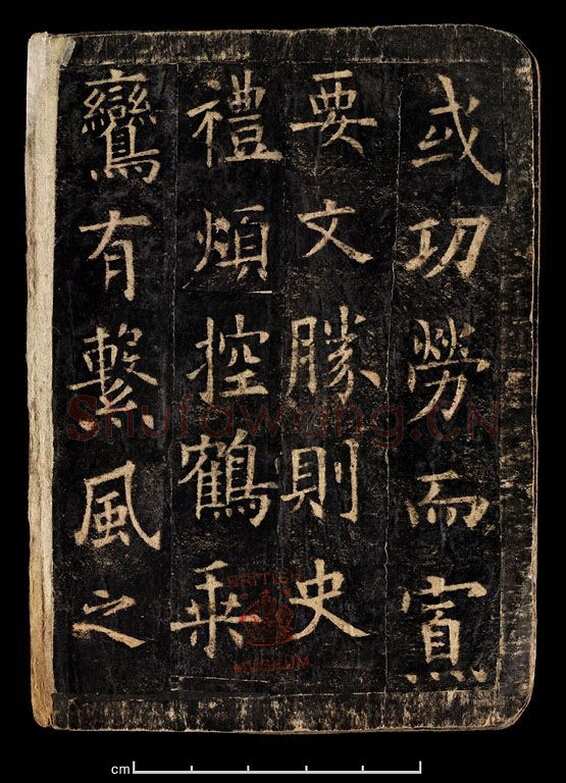 或功勞而寡
要文勝則史
禮煩控鶴乗
鸞有繫風之
Shufawang.CN
BRITISH MUSEUM
cm